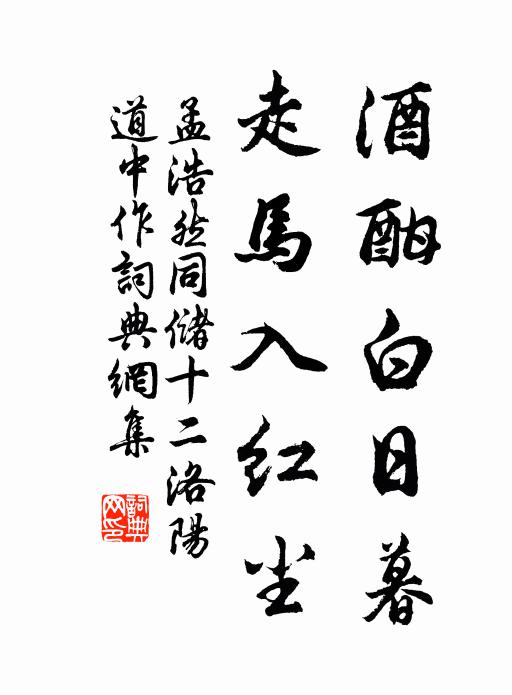 酒酣白日暮
走馬入红尘
孟浩然同儲十二洛陽
道中作詞典網集
詞典
网印